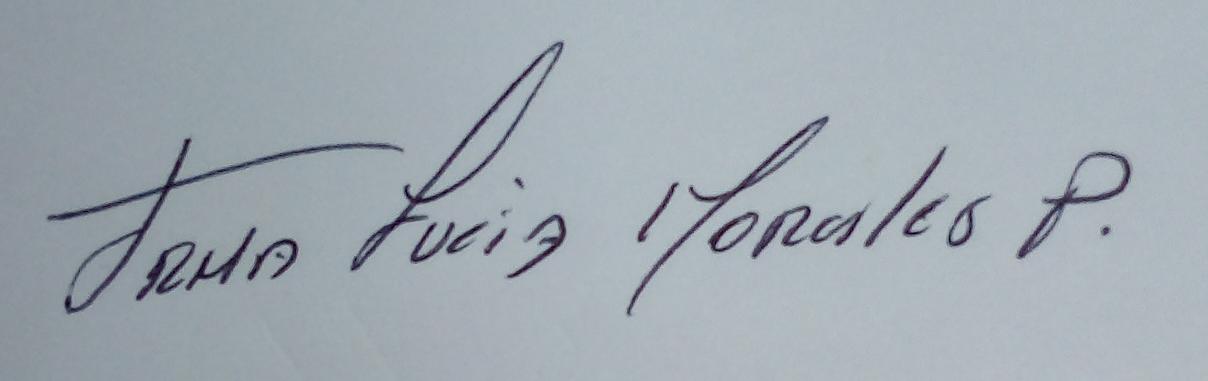 Irma Lucia Morales P.